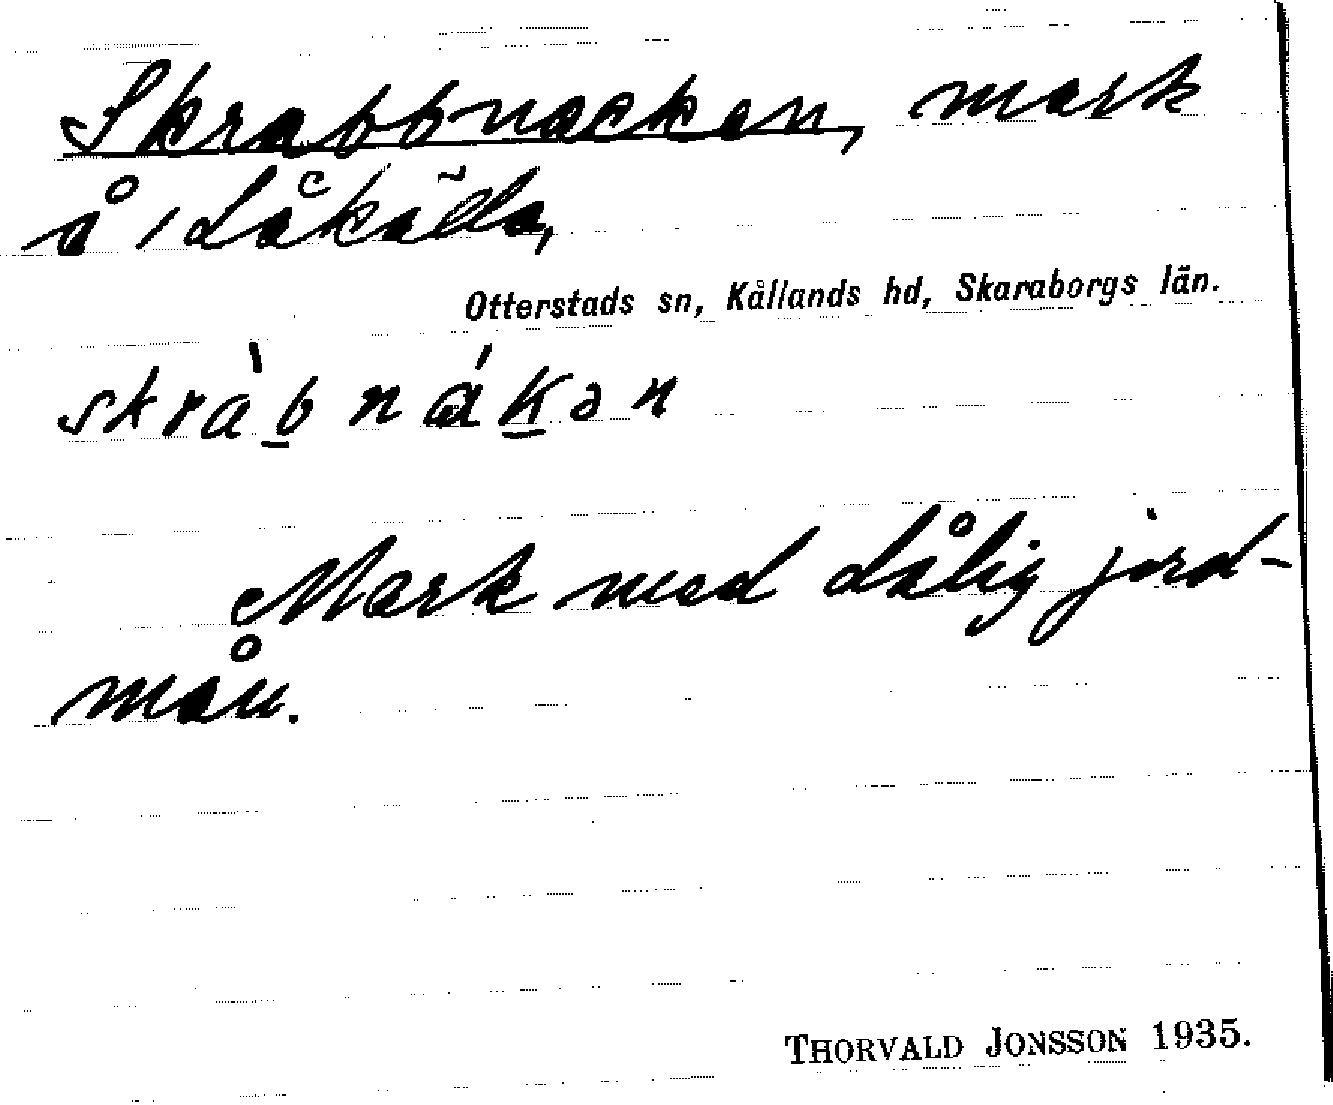 Skrabbnacken, mark
å Låkälla,
Otterstads sn, Kållands hd, Skaraborgs län.
skràb̲ nák̲ən
Mark med dålig jord-
mån.
THORVALD JONSSON 1935.